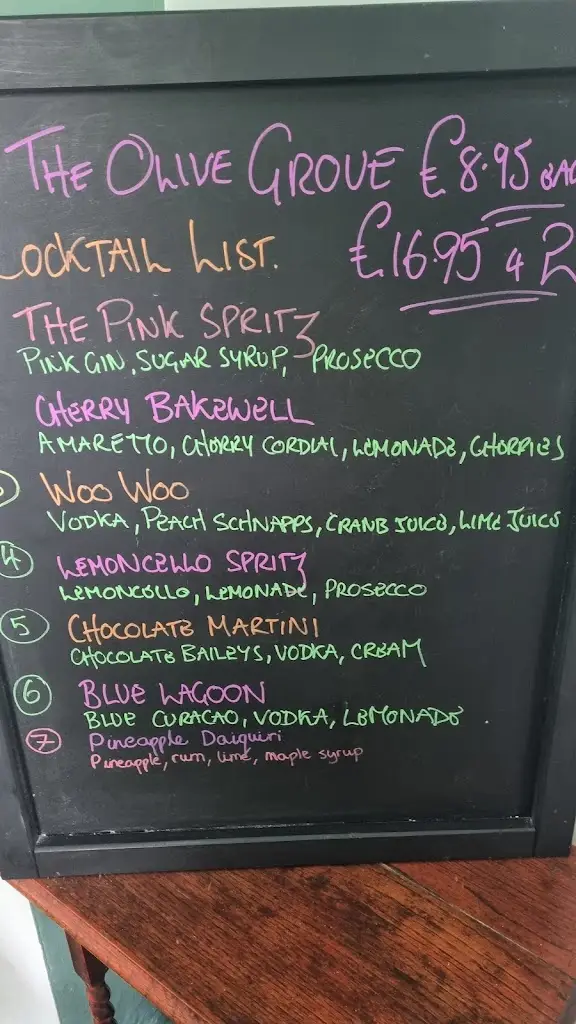 THE OLIVE GROVE £8.95 EAC
COCKTAIL LIST. £16.95 4 2
THE PINK SPRITZ
PINK GIN, SUGAR SYRUP, PROSECCO
CHERRY BAKEWELL
AMARETTO, CHERRY CORDIAL, LEMONADE, CHERRIES
WOO WOO
VODKA, PEACH SCHNAPPS, CRANB JUICE, LIME JUICE
4 LEMONCELLO SPRITZ
LEMONCELLO, LEMONADE, PROSECCO
5 CHOCOLATE MARTINI
CHOCOLATE BAILEYS, VODKA, CREAM
6 BLUE LAGOON
BLUE CURACAO, VODKA, LEMONADE
7 Pineapple Daiquiri
Pineapple, rum, lime, maple syrup